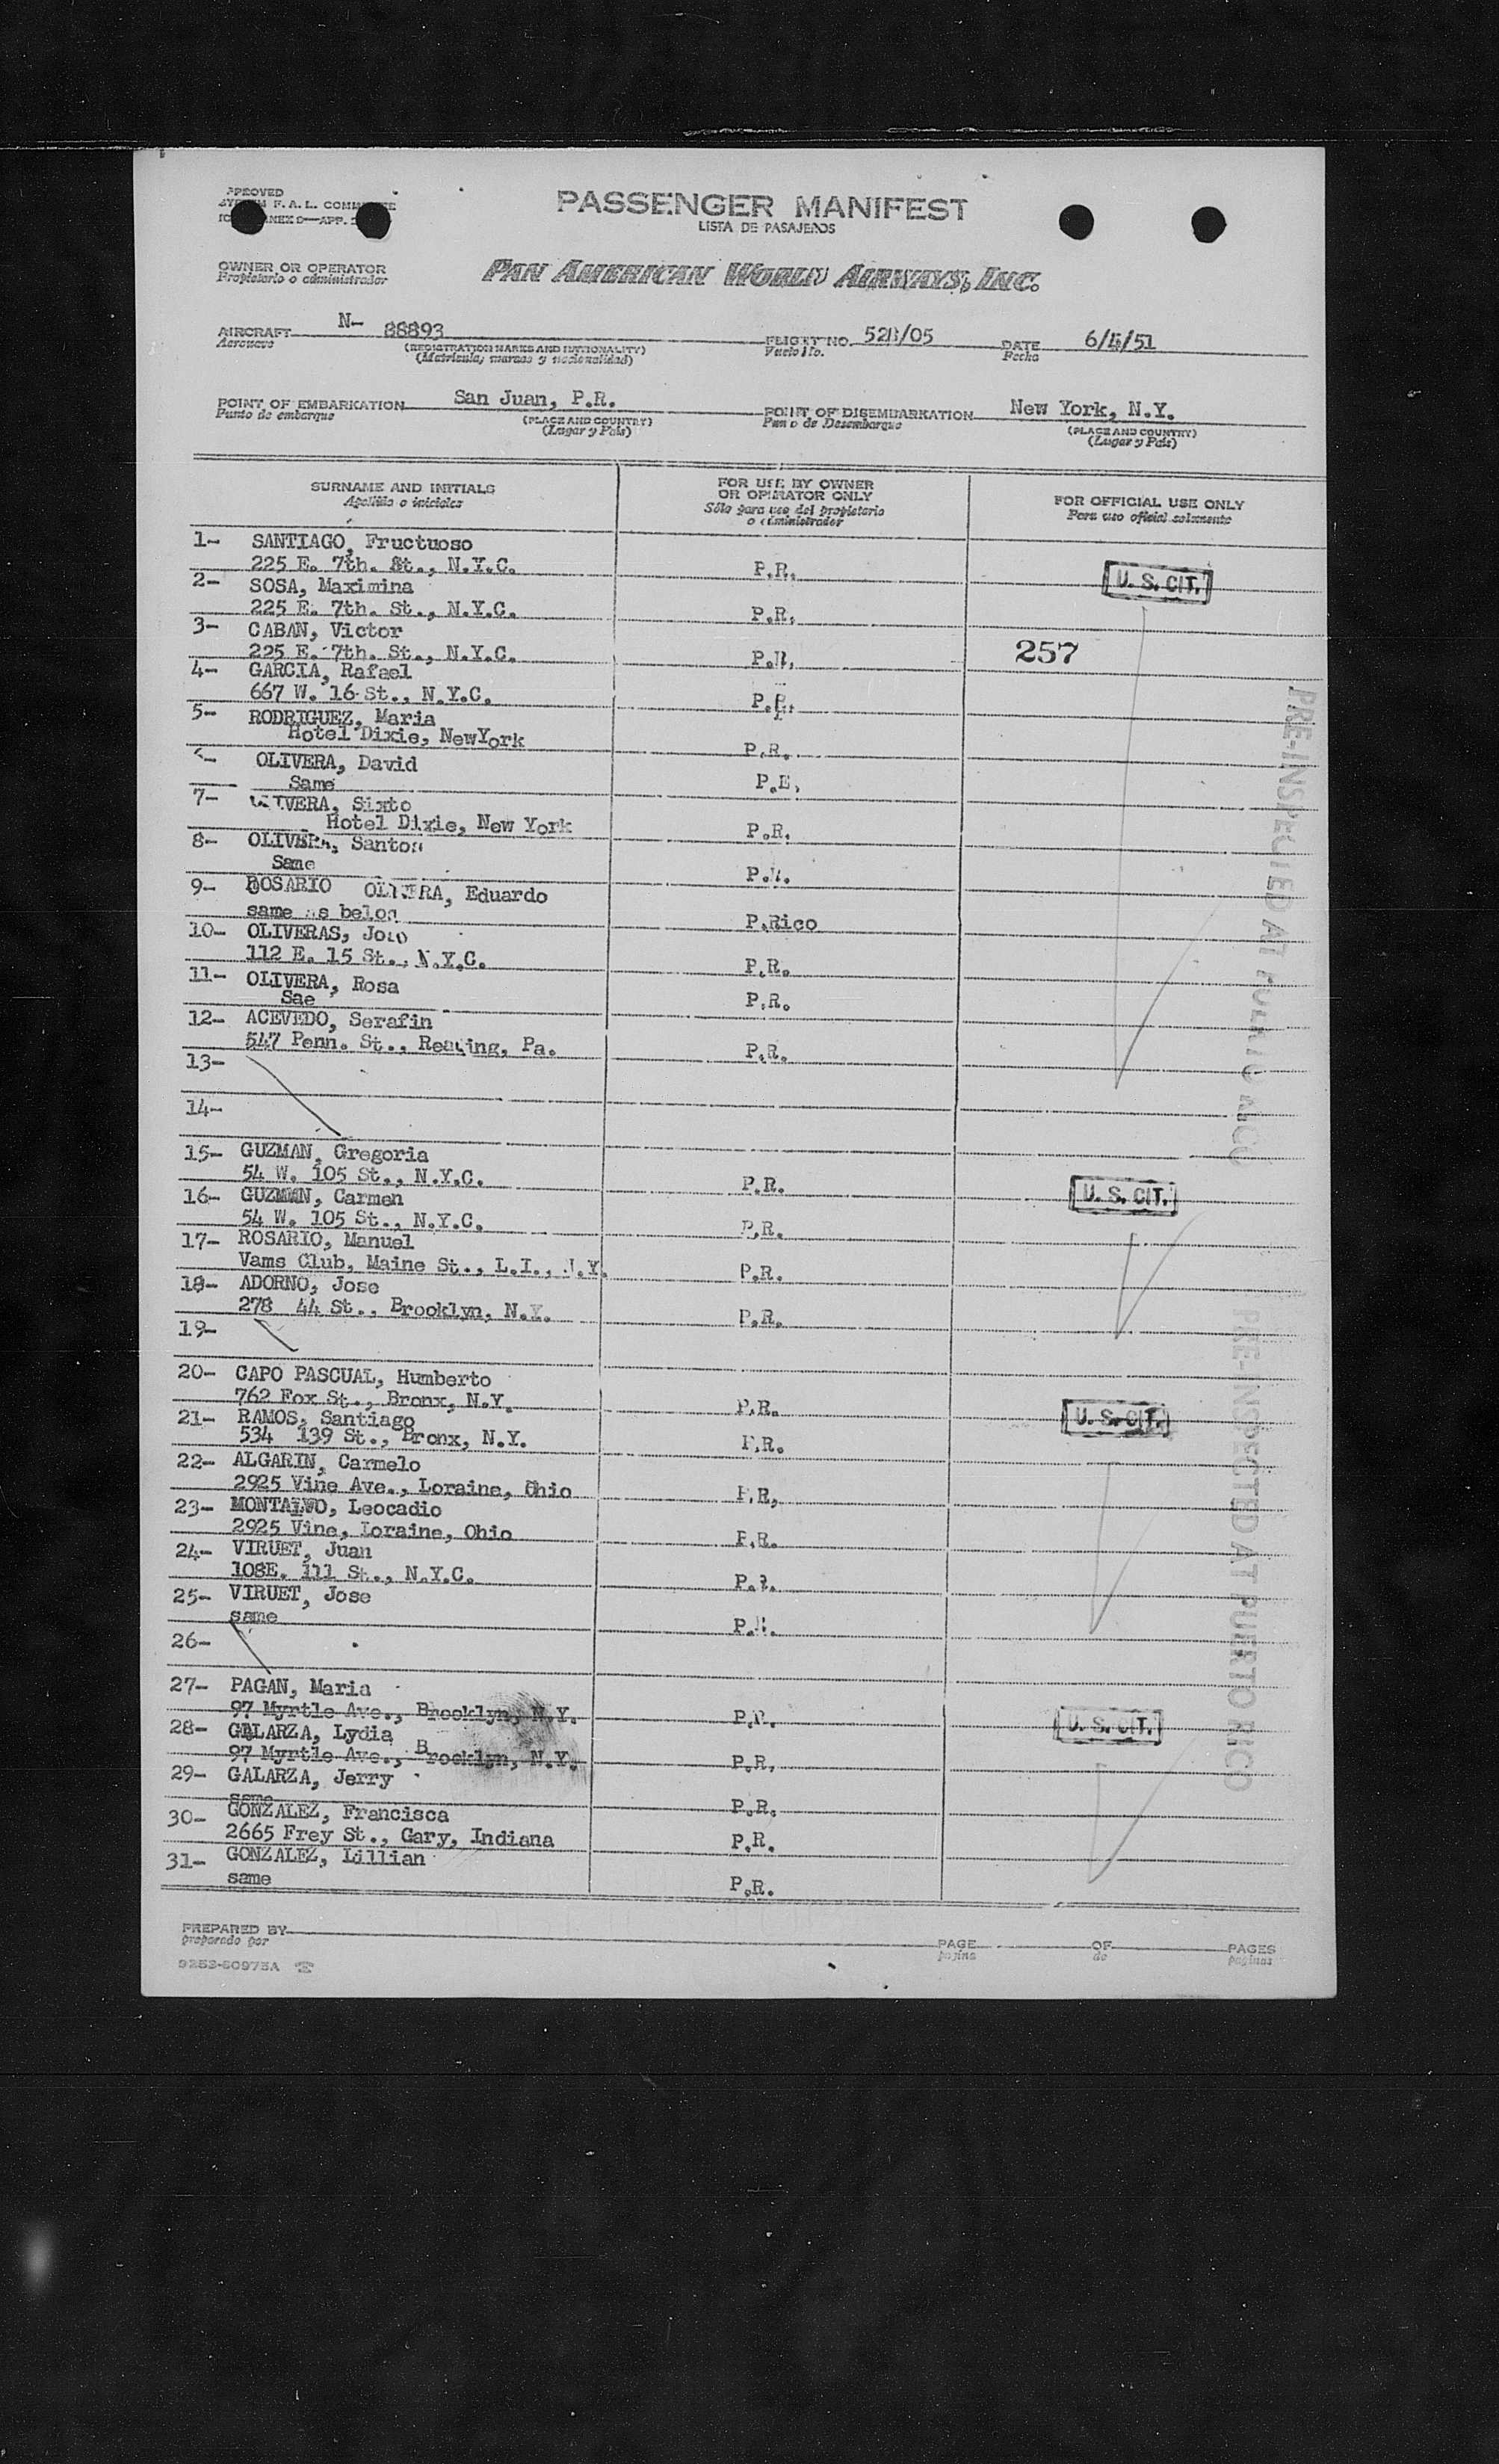 PASSENGER MANIFEST
LISTA DE PASAJEROS
OWNER OR OPERATOR
Propietario o administrador
PAN AMERICAN WORLD AIRWAYS, INC.
AIRCRAFT N- 88893 FLIGHT NO. DATE
Aeronave (REGISTRATION MARKS AND NATIONALITY) Vuelo No. Fecha
(Matricula; marcas y nacionalidad)
POINT OF EMBARKATION San Juan, P.R. POINT OF DISEMBARKATION New York, N.Y.
Punto de embarque (PLACE AND COUNTRY) de Desembarque (PLACE AND COUNTRY)
(Lugar y País) (Lugar y País)
SURNAME AND INITIALS FOR USE BY OWNER OR OPERATOR ONLY FOR OFFICIAL USE ONLY
Apellido o iniciales Sólo para uso del propietario o administrador Para uso oficial solamente
1- SANTIAGO, Fructuoso
225 E. 7th. St., N.Y.C. P.R. U. S. CIT.
2- SOSA, Maximina
225 E. 7th. St., N.Y.C. P.R.
3- CABAN, Victor
225 E. 7th. St., N.Y.C. P.R. 257
4- GARCIA, Rafael
667 W. 16 St., N.Y.C. P.R.
5- RODRIGUEZ, Maria
Hotel Dixie, NewYork P.R.
OLIVERA, David
Same
7- Sixto
Hotel Dixie, New York P.R.
8- OLIVERA, Santos
Same
9- ROSARIO OLIVERA, Eduardo
same as P.Rico
10- OLIVERAS,
112 E. 15 St., N.Y.C. P.R.
11- OLIVERA, Rosa
Sae P.R.
12- ACEVEDO, Serafin
547 Penn. St., Reading, Pa. P.R.
13-
14-
15- GUZMAN, Gregoria
54 W. 105 St., N.Y.C. P.R. U. S. CIT.
16- GUZMAN, Carmen
54 W. 105 St., N.Y.C. P.R.
17- ROSARIO, Manuel
Vams Club, Maine St., L.I., N.Y. P.R.
18- ADORNO, Jose
278 44 St., Brooklyn, N.Y. P.R.
19-
20- CAPO PASCUAL, Humberto
762 Fox St., Bronx, N.Y. P.R. U. S. CIT.
21- RAMOS, Santiago
534 139 St., Bronx, N.Y. P.R.
22- ALGARIN, Carmelo
2925 Vine Ave., Loraine, Ohio P.R.
23- MONTALVO, Leocadio
2925 Vine, Loraine, Ohio P.R.
24- VIRUET, Juan
108E. 111 St., N.Y.C. P.R.
25- VIRUET, Jose
same P.R.
26-
27- PAGAN, Maria
97 Myrtle Ave., Brooklyn, N.Y. P.R. U. S. CIT.
28- GALARZA, Lydia
97 Myrtle Ave., Brooklyn, N.Y. P.R.
29- GALARZA, Jerry
same P.R.
30- GONZALEZ, Francisca
2665 Frey St., Gary, Indiana P.R.
31- GONZALEZ, Lillian
same P.R.
PRE-INSPECTED AT PUERTO RICO
PRE-INSPECTED AT PUERTO RICO
PREPARED BY PAGE OF PAGES
preparado por pagina de paginas